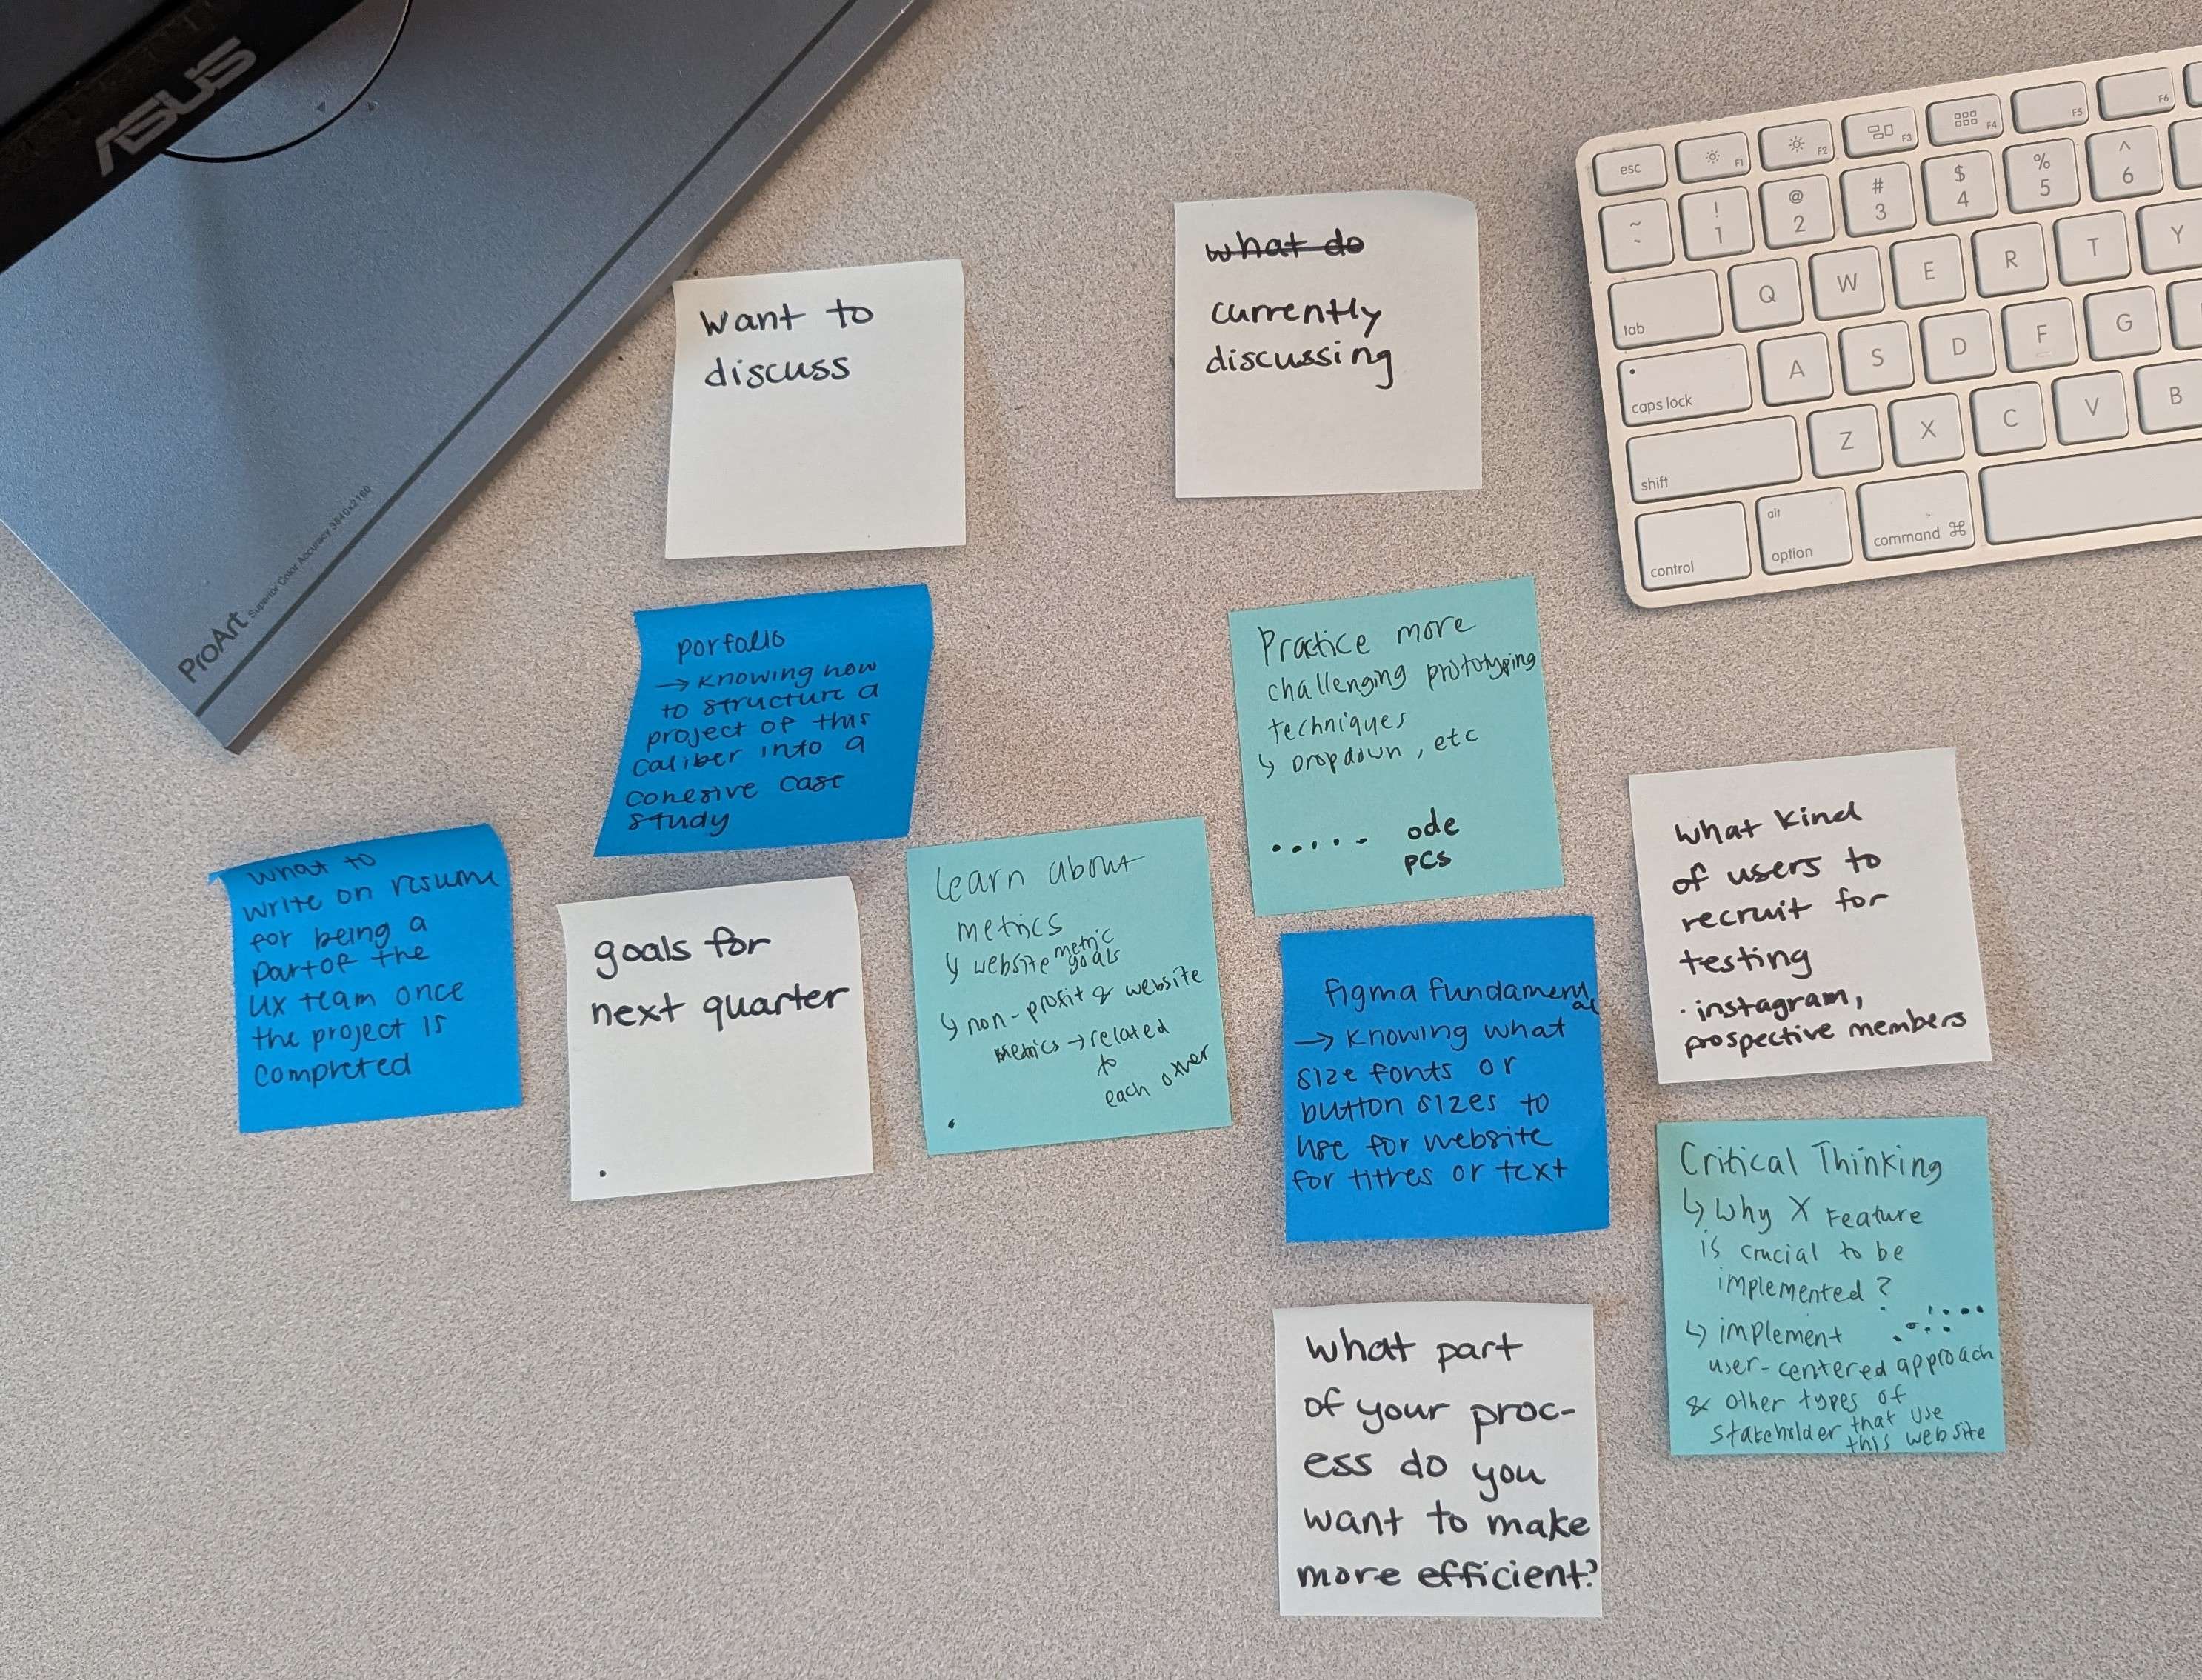 ASUS
ProArt Superior Color Accuracy 3840x2160
esc
F1
F2
F3
F4
F5
F6
~
`
!
1
@
2
#
3
$
4
%
5
^
6
tab
Q
W
E
R
T
Y
caps lock
A
S
D
F
G
shift
Z
X
C
V
B
control
alt
option
command ⌘
want to
discuss
what do
currently
discussing
porfolio
→ Knowing how
to structure a
project of this
caliber into a
cohesive case
study
Practice more
challenging prototyping
techniques
↳ Dropdown, etc
..... ode
pcs
what to
write on resume
for being a
part of the
UX team once
the project is
completed
goals for
next quarter
.
Learn about
metrics
↳ website metric
goals
↳ non-profit & website
metrics → related
to
each other
.
figma fundamental
→ Knowing what
size fonts or
button sizes to
use for website
for titres or text
what kind
of users to
recruit for
testing
· instagram,
prospective members
what part
of your proc-
ess do you
want to make
more efficient?
Critical Thinking
↳ Why X Feature
is crucial to be
implemented?
↳ implement
user-centered approach
& other types of
stakeholder that use
this website